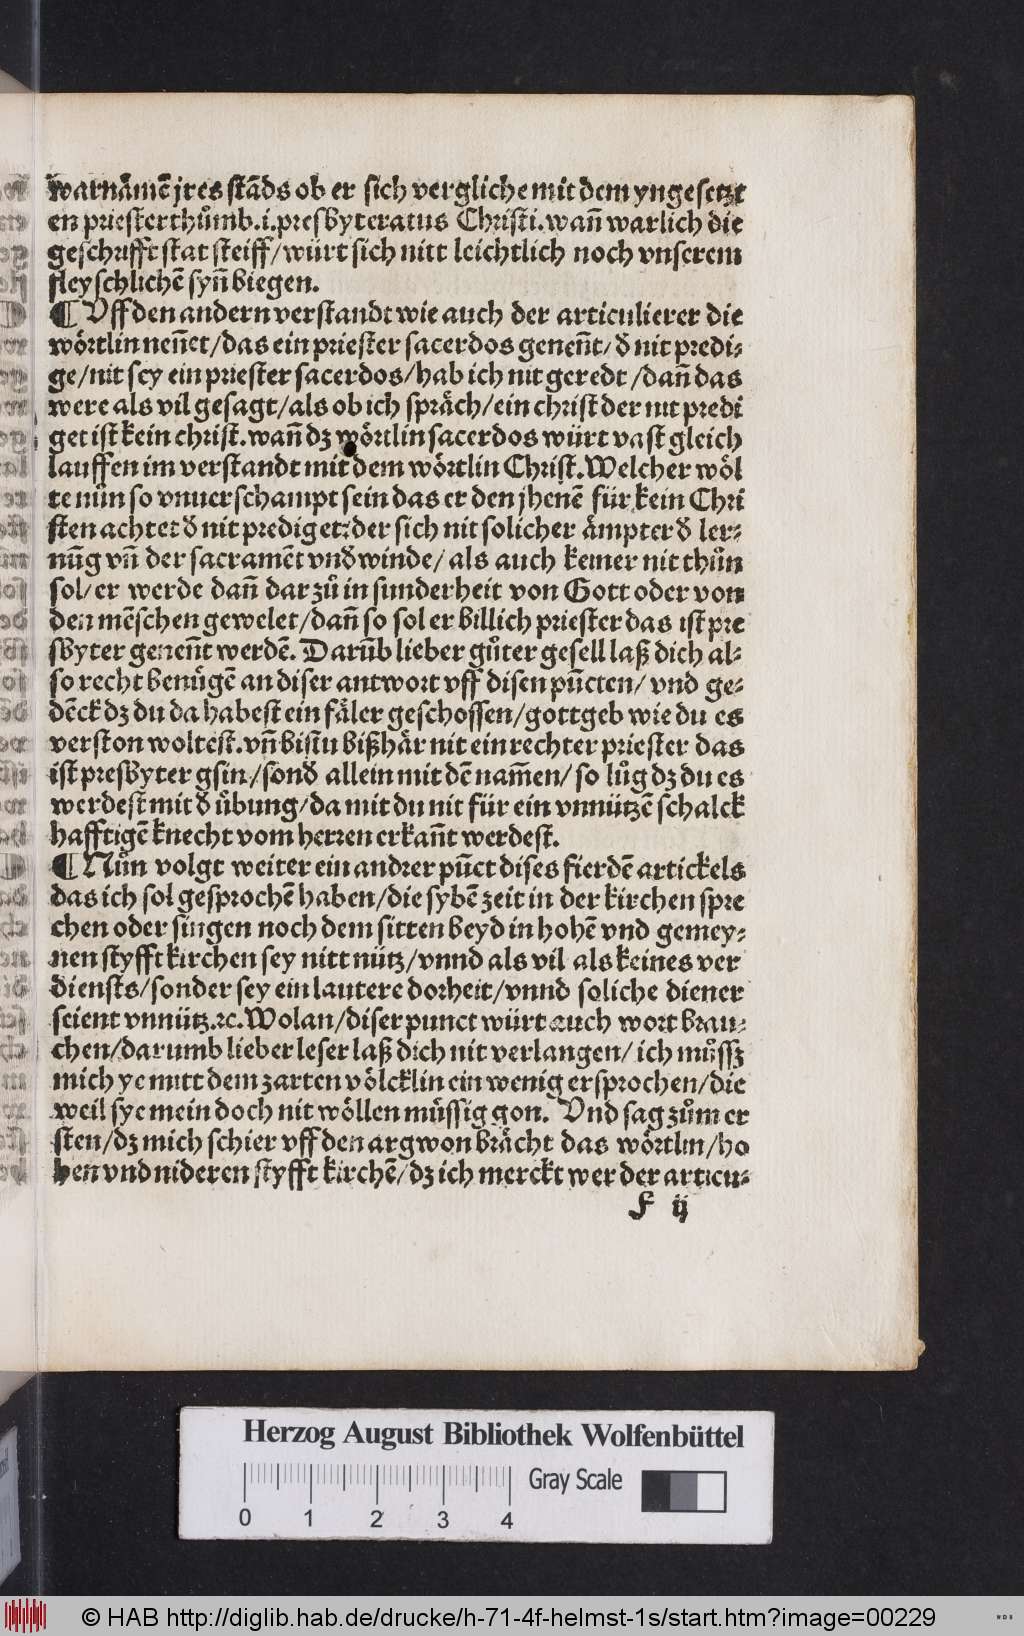 warnåmẽ jres stãds ob er sich vergliche mit dem yngesetzt
en priesterthůmb.i.presbyteratus Christi.wañ warlich die
geschrifft stat steiff/würt sich nitt leichtlich noch vnserem
fleyschlichẽ syñ biegen.
¶ Uff den andern verstandt wie auch der articulierer die
wörtlin neñet/das ein priester sacerdos geneñt/ð nit predi⸗
ge/nit sey ein priester sacerdos/hab ich nit geredt/dañ das
were als vil gesagt/als ob ich språch/ein christ der nit predi
get ist kein christ.wañ dz wörtlin sacerdos würt vast gleich
lauffen im verstandt mit dem wörtlin Christ.Welcher wöl
te nůn so vnuerschampt sein das er den jhenẽ für kein Chri
sten achtet ð nit prediget:der sich nit solicher åmpter ð ler⸗
nũg vñ der sacramẽt vnðwinde/als auch keiner nit thůn
sol/er werde dañ dar zů in sunderheit von Gott oder von
den mẽschen gewelet/dañ so sol er billich priester das ist pre
sbyter geneñt werdẽ.Darũb lieber gůter gesell laß dich al⸗
so recht benůgẽ an diser antwort vff disen pũcten/vnd ge⸗
dẽck dz du da habest ein fåler geschossen/gottgeb wie du es
verston woltest.vñ bistu bißhår nit ein rechter priester das
ist presbyter gsin/sonð allein mit dẽ nam̃en/so lůg dz du es
werdest mit ð ůbung/da mit du nit für ein vnnützẽ schalck
hafftigẽ knecht vom herren erkañt werdest.
¶ Nůn volgt weiter ein andrer pũct dises fierdẽ artickels
das ich sol gesprochẽ haben/die sybẽ zeit in der kirchen spre
chen oder singen noch dem sitten beyd in hohẽ vnd gemey⸗
nen styfft kirchen sey nitt nütz/vnnd als vil als keines ver
diensts/sonder sey ein lautere dorheit/vnnd soliche diener
seient vnnütz.ꝛc.Wolan/diser punct würt auch wort brau⸗
chen/darumb lieber leser laß dich nit verlangen/ich můssz
mich ye mitt dem zarten völcklin ein wenig ersprochen/die
weil sye mein doch nit wöllen müssig gon. Vnd sag zům er
sten/dz mich schier vff den argwon bråcht das wörtlin/ho
hen vnd nideren styfft kirchẽ/dz ich merckt wer der articu⸗
f ij
Herzog August Bibliothek Wolfenbüttel
Gray Scale
0 1 2 3 4
© HAB http://diglib.hab.de/drucke/h-71-4f-helmst-1s/start.htm?image=00229